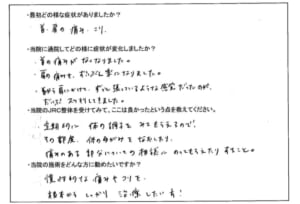 ・最初どの様な症状がありましたか？
首、肩の痛み、こり。
・当院に通院してどの様に症状が変化しましたか？
・首の痛みがなくなりました。
・肩の痛みも、ずいぶん楽になりました。
・首から肩にかけて、ずっと張っているような感覚だったのが、
だいぶスッキリしてきました。
・当院のJRC整体を受けてみて、ここは良かったという点を教えてください。
・定期的に体の調子をみてもらえるので、
その都度、体のゆがみをなおしたり、
痛みのある部分についての相談にのってもらえたりすること。
・当院の施術をどんな方に勧めたいですか？
慢性的な痛みやコリを、
根本からしっかり治療したい方！